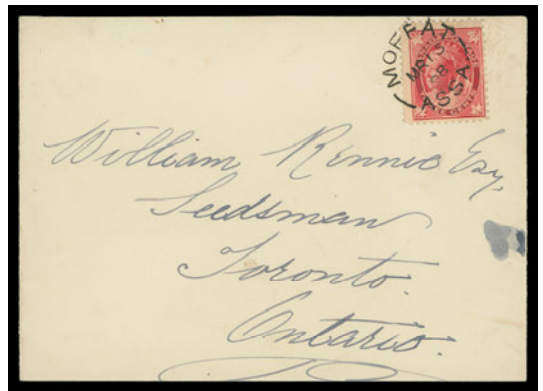 MOFFAT
MR 12
98
ASSA
William Rennie Esq,
Seedsman
Toronto.
Ontario.